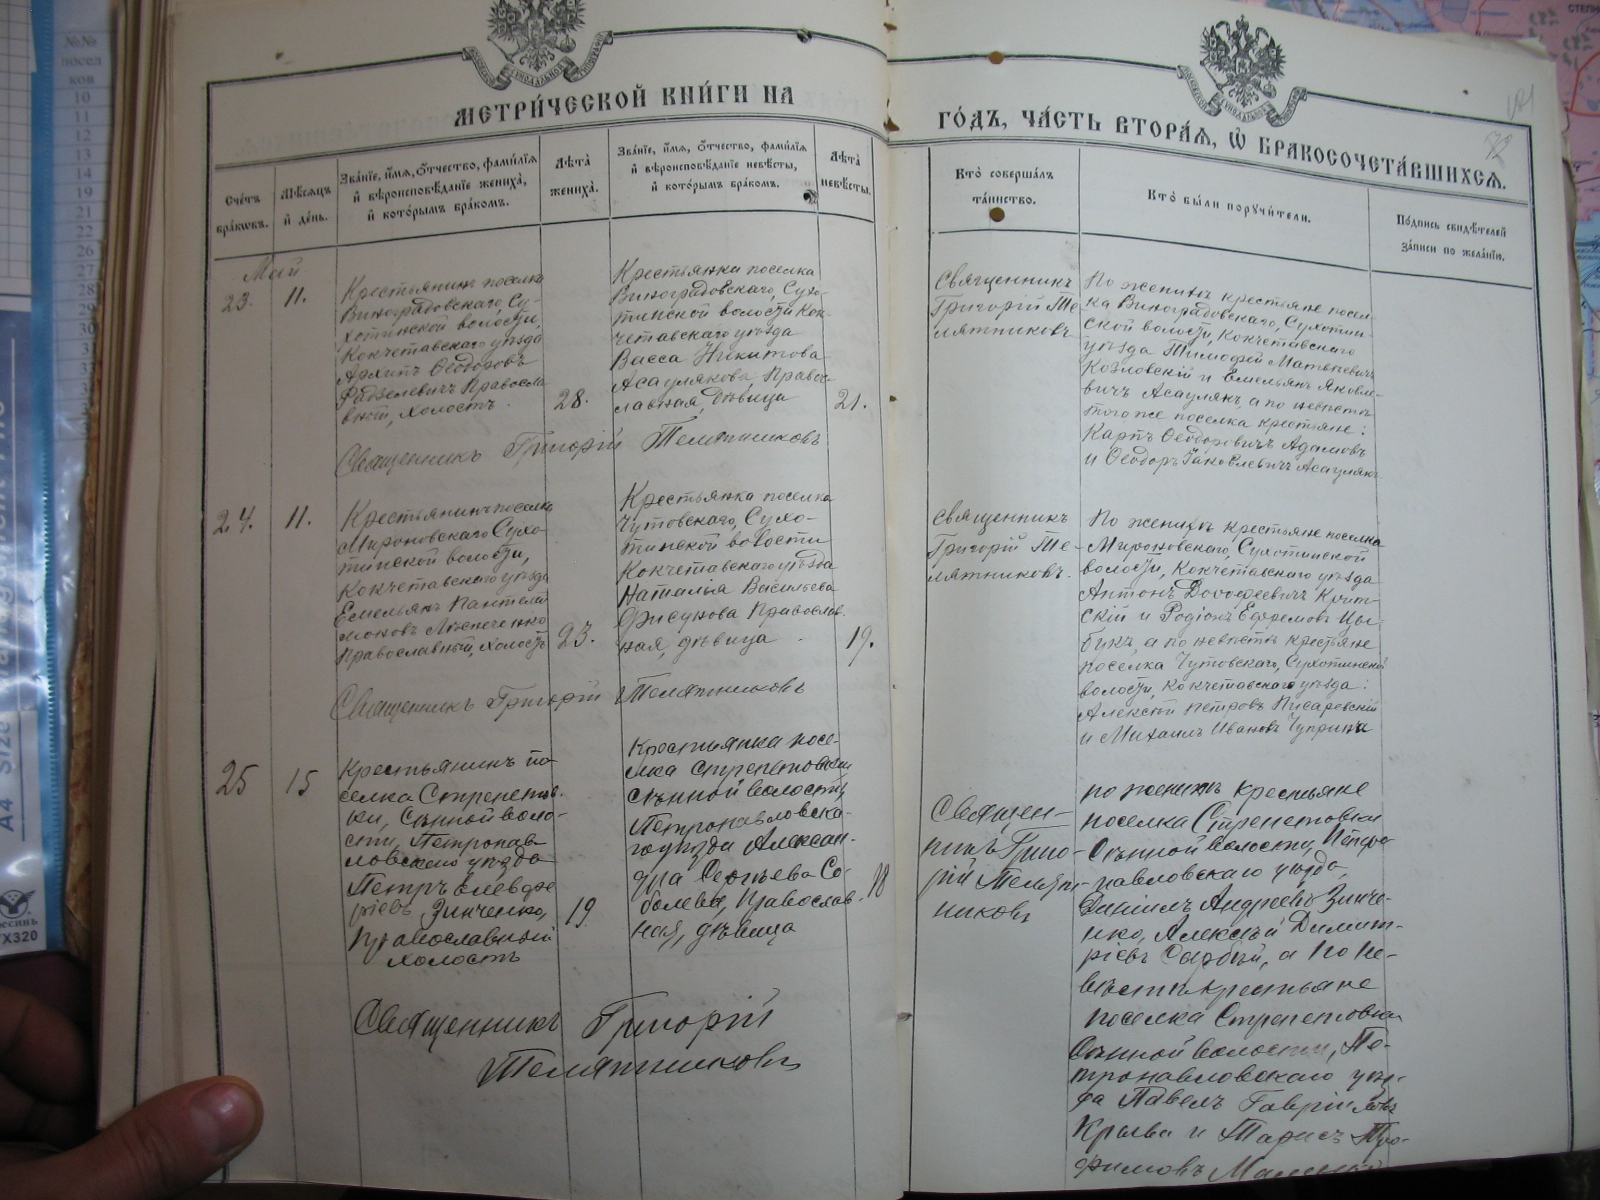 МЕТРИ́ЧЕСКОЙ КНИ́ГИ НА
ГО́ДЪ, ЧА́СТЬ ВТОРА́Я, Ѡ БРАКОСОЧЕТА́ВШИХСЯ.
Сче́тъ
бра́ковъ.
Мѣ́сяцъ
и де́нь.
Зва́нїе, и́мя, о́тчество, фами́лїя
и вѣроисповѣ́данїе жениха̀,
и кото́рымъ бра́комъ.
Лѣ́та
жениха̀.
Зва́нїе, и́мя, о́тчество, фами́лїя
и вѣроисповѣ́данїе невѣ́сты,
и кото́рымъ бра́комъ.
Лѣ́та
невѣ́сты.
Кто̀ соверша́лъ
та́инство.
Кто̀ бы́ли поручи́тели.
По́дпись свидѣ́телей
за́писи по жела́нїю.
Май
23.
11.
Крестьянинъ поселка
Виноградовскаго, Су-
хотинской волости,
Кокчетавскаго уѣзда
Архипъ Ѳеодоровъ
Православ
ный, холостъ.
28.
Крестьянка поселка
Виноградовскаго, Сухо-
тинской волости Кок-
четавскаго уѣзда
Васса Никитова
Асаулякова, Право-
славная, дѣвица
21.
Священникъ
Григорій Те-
лятниковъ
По женихѣ крестьяне посел-
ка Виноградовскаго, Сухотин-
ской волости, Кокчетавскаго
уѣзда Тимофей Матвѣевичъ
Козловскій и Емельянъ Яковле-
вичъ Асаулякъ, а по невѣстѣ
того же поселка крестьяне:
Карпъ Ѳеодоровичъ Адамовъ
и Ѳеодоръ Іаковлевичъ Асаулякъ
Священникъ Григорій Телятниковъ
24.
11.
Крестьянинъ поселка
Мироновскаго Сухо-
тинской волости,
Кокчетавскаго уѣзда
Емельянъ Пантелей
моновъ
Православный, холостъ
23.
Крестьянка поселка
Чутовскаго, Сухо-
тинской волости
Кокчетавскаго уѣзда
Наталья Васильева
Фисунова Православ
ная, дѣвица
19.
Священникъ
Григорій Те-
лятниковъ.
По женихѣ крестьяне поселка
Мироновскаго, Сухотинской
волости, Кокчетавскаго уѣзда
Антонъ Дорофеевичъ Крит-
скій и Родіонъ Ефремовъ Цы-
бикъ, а по невѣстѣ крестьяне
поселка Чутовскаго, Сухотинской
волости, Кокчетавскаго уѣзда:
Алексѣй Петровъ Писаревскій
и Михаилъ Ивановъ Чуприна
Священникъ Григорій Телятниковъ
25
15
Крестьянинъ по-
селка Стрепетов-
ки, Сѣнной воло-
сти, Петропав-
ловскаго уѣзда
Петръ Елевфе
ріевъ Зинченко,
православный
холостъ
19
Крестьянка посе-
лка Стрепетовки
Сѣнной волости,
Петропавловска-
го уѣзда Алексан-
дра Сергѣева Со-
болева, православ-
ная, дѣвица
18
Священ-
никъ Григо-
рій Телят-
никовъ
по женихѣ крестьяне
поселка Стрепетовки
Сѣнной волости, Петро
павловскаго уѣзда,
Даніилъ Андреевъ Зинче-
нко, Алексѣй Димит-
ріевъ, а по не-
вѣстѣ крестьяне
поселка Стрепетовки
Сѣнной волости, Пе-
тропавловскаго уѣз-
да Павелъ Гавріиловъ
и Тарасъ Тро-
фимовъ
Священникъ Григорій
Телятниковъ